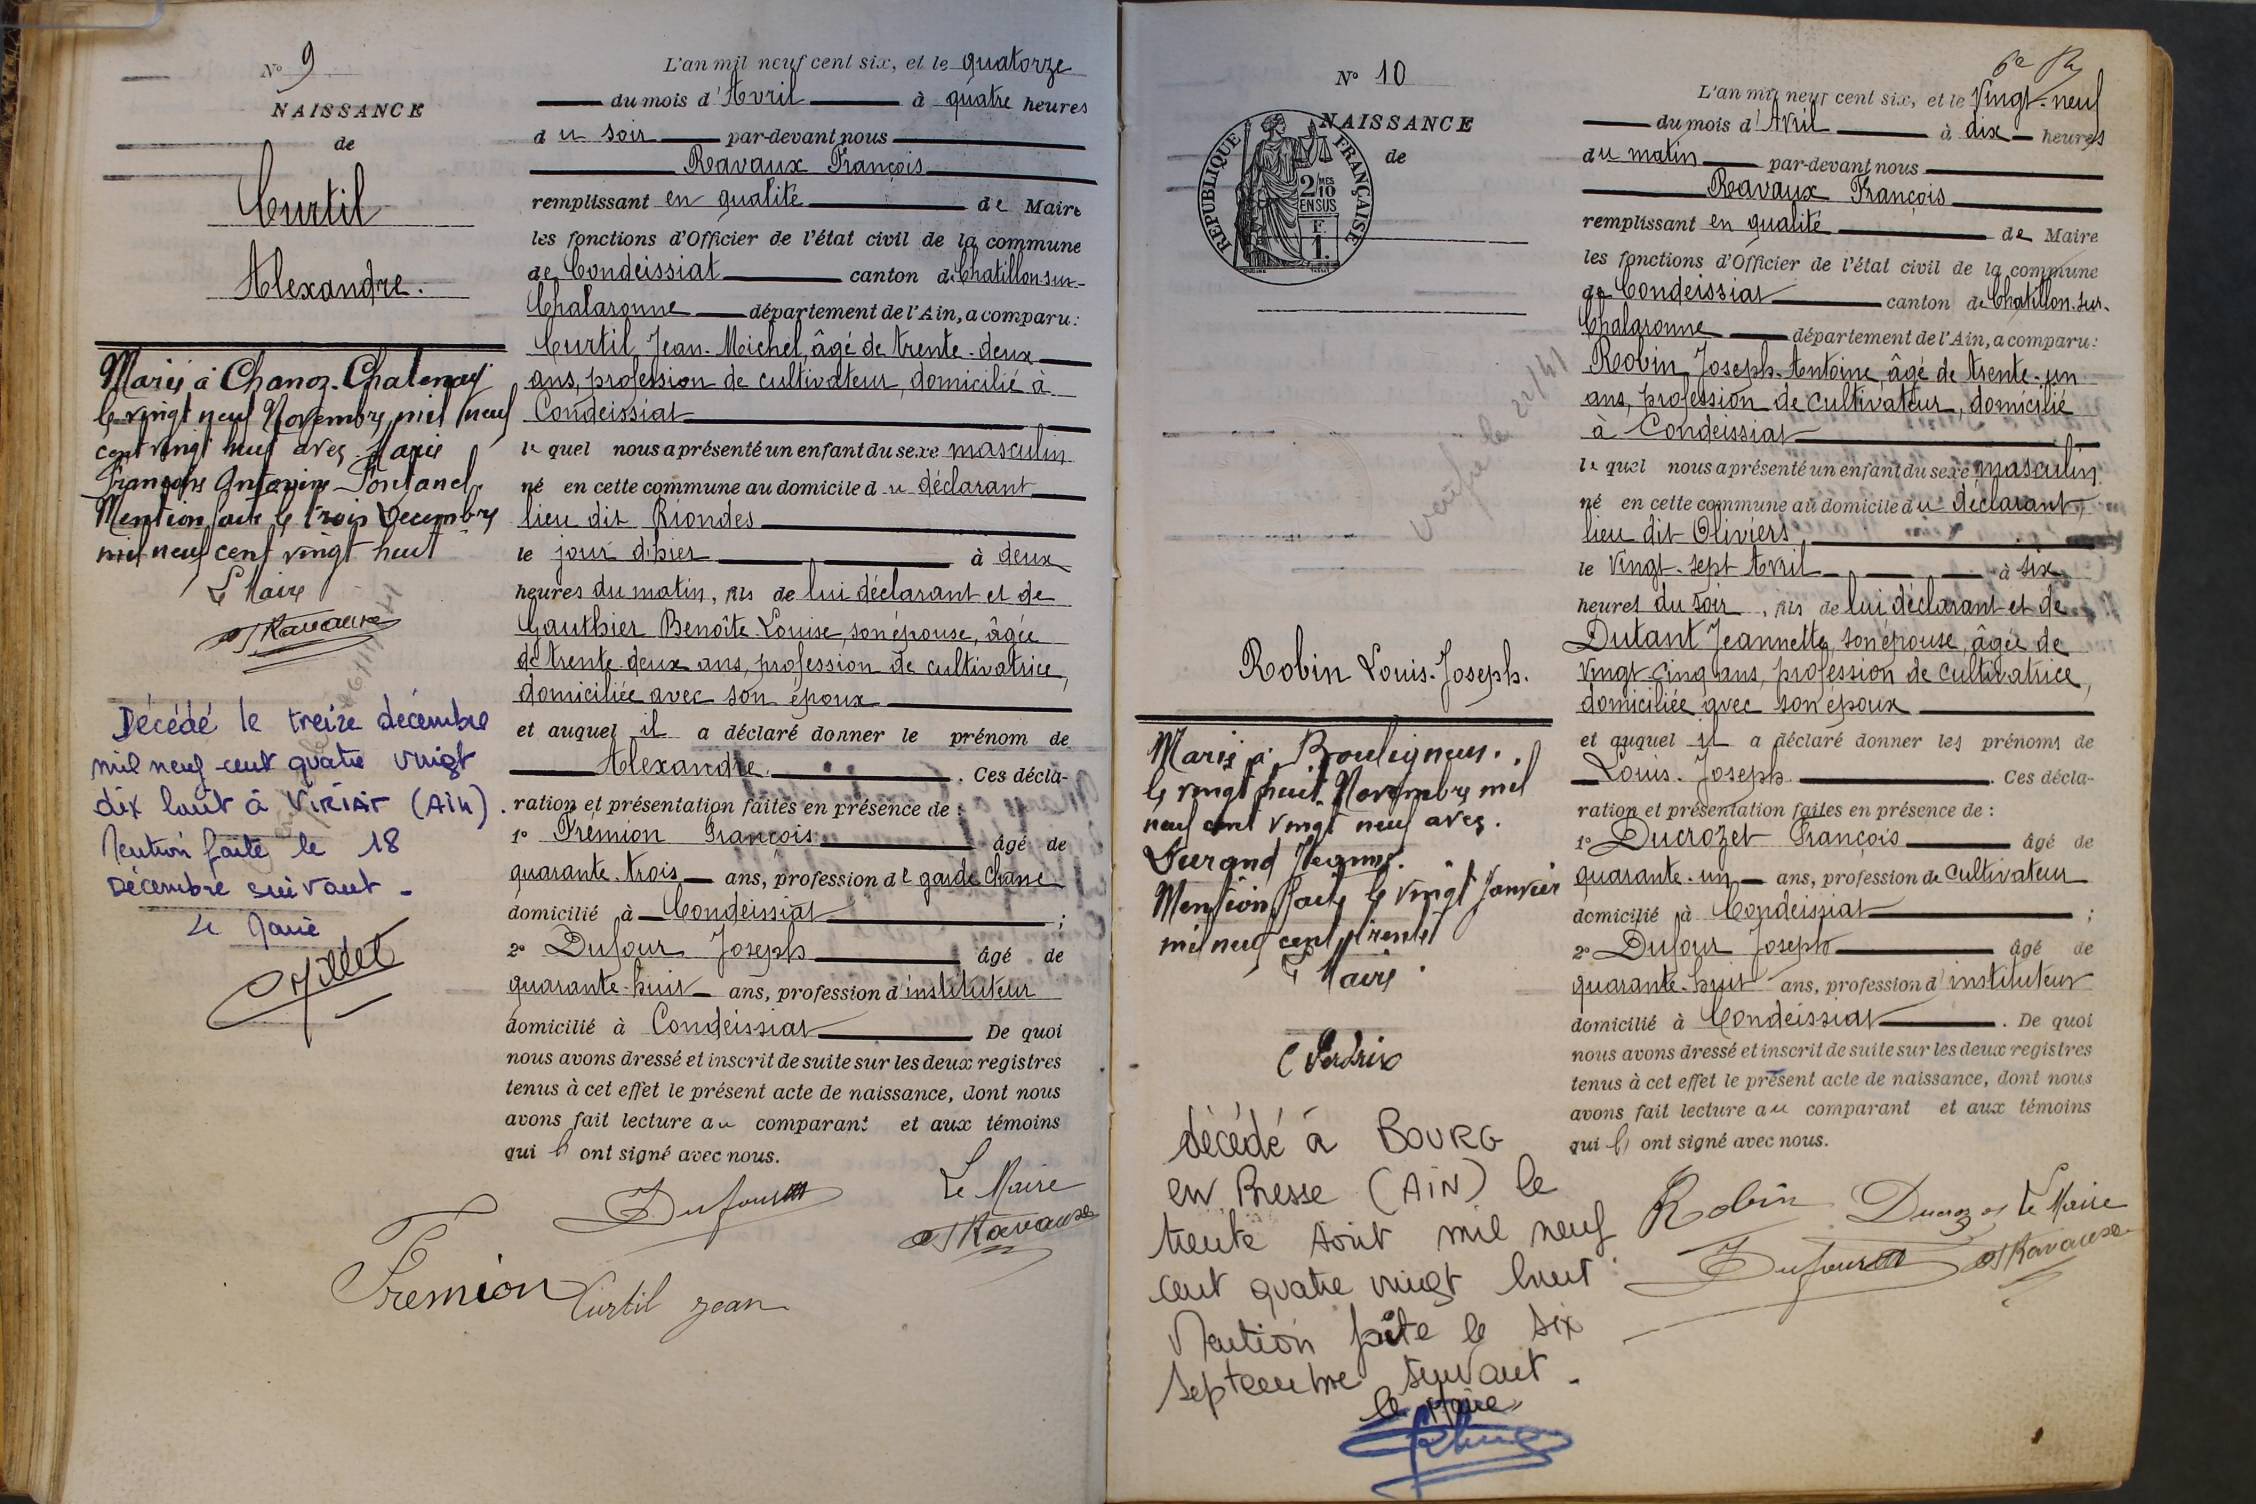 N° 9
NAISSANCE
de
Curtil
Alexandre.
Marié à Chanoz-Chatenay
le vingt neuf Novembre mil neuf
cent vingt huit avec Marie
Françoise Antonine Fontanel.
Mention faite le trois Decembre
mil neuf cent vingt huit
Le Maire
Ravaux
Décédé le treize décembre
mil neuf cent quatre vingt
dix huit à VIRIAT (AIN).
Mention faite le 18
Décembre suivant -
Le Maire
L'an mil neuf cent six, et le quatorze
du mois d'Avril à quatre heures
du soir par-devant nous
Ravaux François
remplissant en qualité de Maire
les fonctions d'Officier de l'état civil de la commune
de Condeissiat canton de Chatillon-sur-
Chalaronne département de l'Ain, a comparu :
Curtil Jean-Michel, âgé de trente-deux
ans, profession de cultivateur, domicilié à
Condeissiat
lequel nous a présenté un enfant du sexe masculin
né en cette commune au domicile du déclarant
lieu dit Riondes
le jour d'hier à deux
heures du matin, fils de lui déclarant et de
Gauthier Benoîte Louise, son épouse, âgée
de trente-deux ans, profession de cultivatrice,
domiciliée avec son époux
et auquel il a déclaré donner le prénom de
Alexandre. . Ces décla-
ration et présentation faites en présence de :
1° Frémion François âgé de
quarante-trois ans, profession de garde chasse
domicilié à Condeissiat ;
2° Dufour Joseph âgé de
quarante-huit ans, profession d'instituteur
domicilié à Condeissiat De quoi
nous avons dressé et inscrit de suite sur les deux registres
tenus à cet effet le présent acte de naissance, dont nous
avons fait lecture au comparant et aux témoins
qui ont signé avec nous.
Le Maire
Dufour
Ravaux
Fremion Curtil jean
N° 10
NAISSANCE
de
RÉPUBLIQUE FRANÇAISE
2/10 MES
EN SUS
F
1.
Robin Louis-Joseph.
Marié à Bouligneux.
le vingt huit Novembre mil
neuf cent vingt neuf avec.
Durand Jeanne.
Mention faite le vingt Janvier
mil neuf cent trente
Le Maire
décédé à BOURG
en Bresse (AIN) le
trente août mil neuf
cent quatre vingt huit
Mention faite le six
septembre suivant -
le Maire
vérifié le
L'an mil neuf cent six, et le vingt-neuf
du mois d'Avril à dix heures
du matin par-devant nous
Ravaux François
remplissant en qualité de Maire
les fonctions d'Officier de l'état civil de la commune
de Condeissiat canton de Chatillon-sur-
Chalaronne département de l'Ain, a comparu :
Robin Joseph-Antoine, âgé de trente-un
ans, profession de cultivateur, domicilié
à Condeissiat
lequel nous a présenté un enfant du sexe masculin
né en cette commune au domicile du déclarant,
lieu dit Oliviers,
le vingt-sept Avril à six
heures du soir, fils de lui déclarant et de
Dutant Jeannette, son épouse, âgée de
vingt-cinq ans, profession de cultivatrice,
domiciliée avec son époux
et auquel il a déclaré donner les prénoms de
Louis-Joseph. . Ces décla-
ration et présentation faites en présence de :
1° Ducrozet François âgé de
quarante-un ans, profession de cultivateur
domicilié à Condeissiat ;
2° Dufour Joseph âgé de
quarante-huit ans, profession d'instituteur
domicilié à Condeissiat . De quoi
nous avons dressé et inscrit de suite sur les deux registres
tenus à cet effet le présent acte de naissance, dont nous
avons fait lecture au comparant et aux témoins
qui ont signé avec nous.
Robin Le Maire
Dufour Ravaux